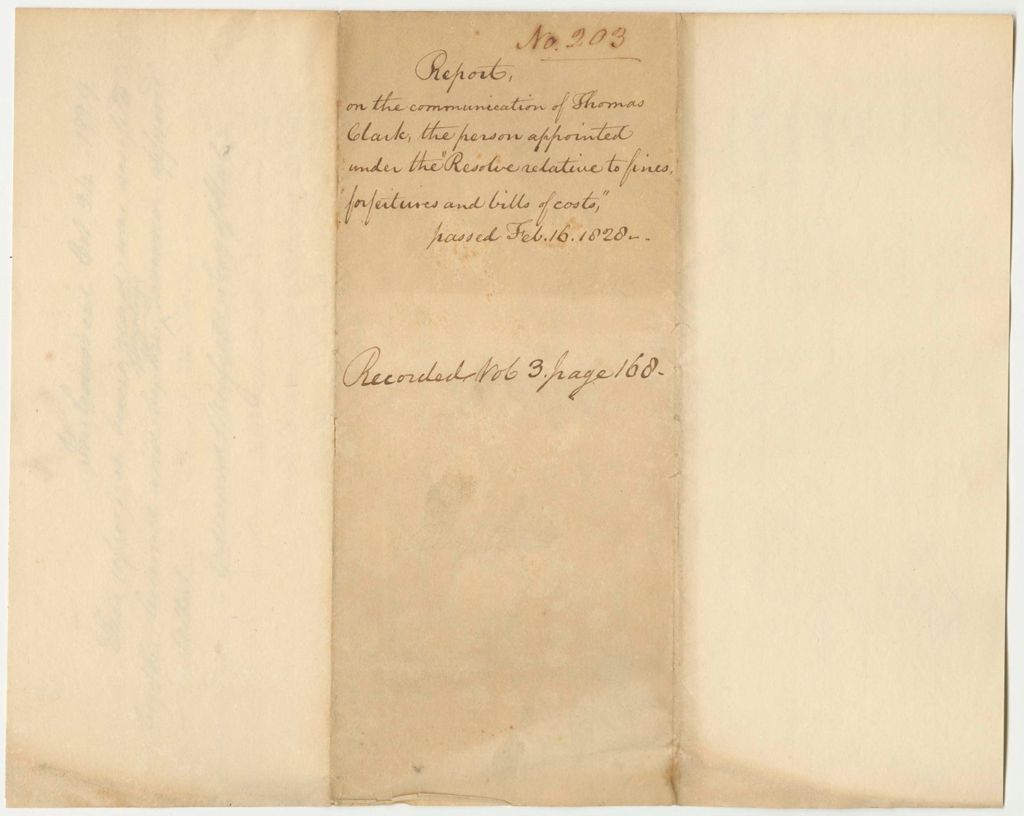 No. 203
Report,
on the communication of Thomas
Clark, the person appointed
under the "Resolve relative to fines,
"forfeitures and bills of costs,"
passed Feb. 16. 1828-.
Recorded Vol 3. page 168-